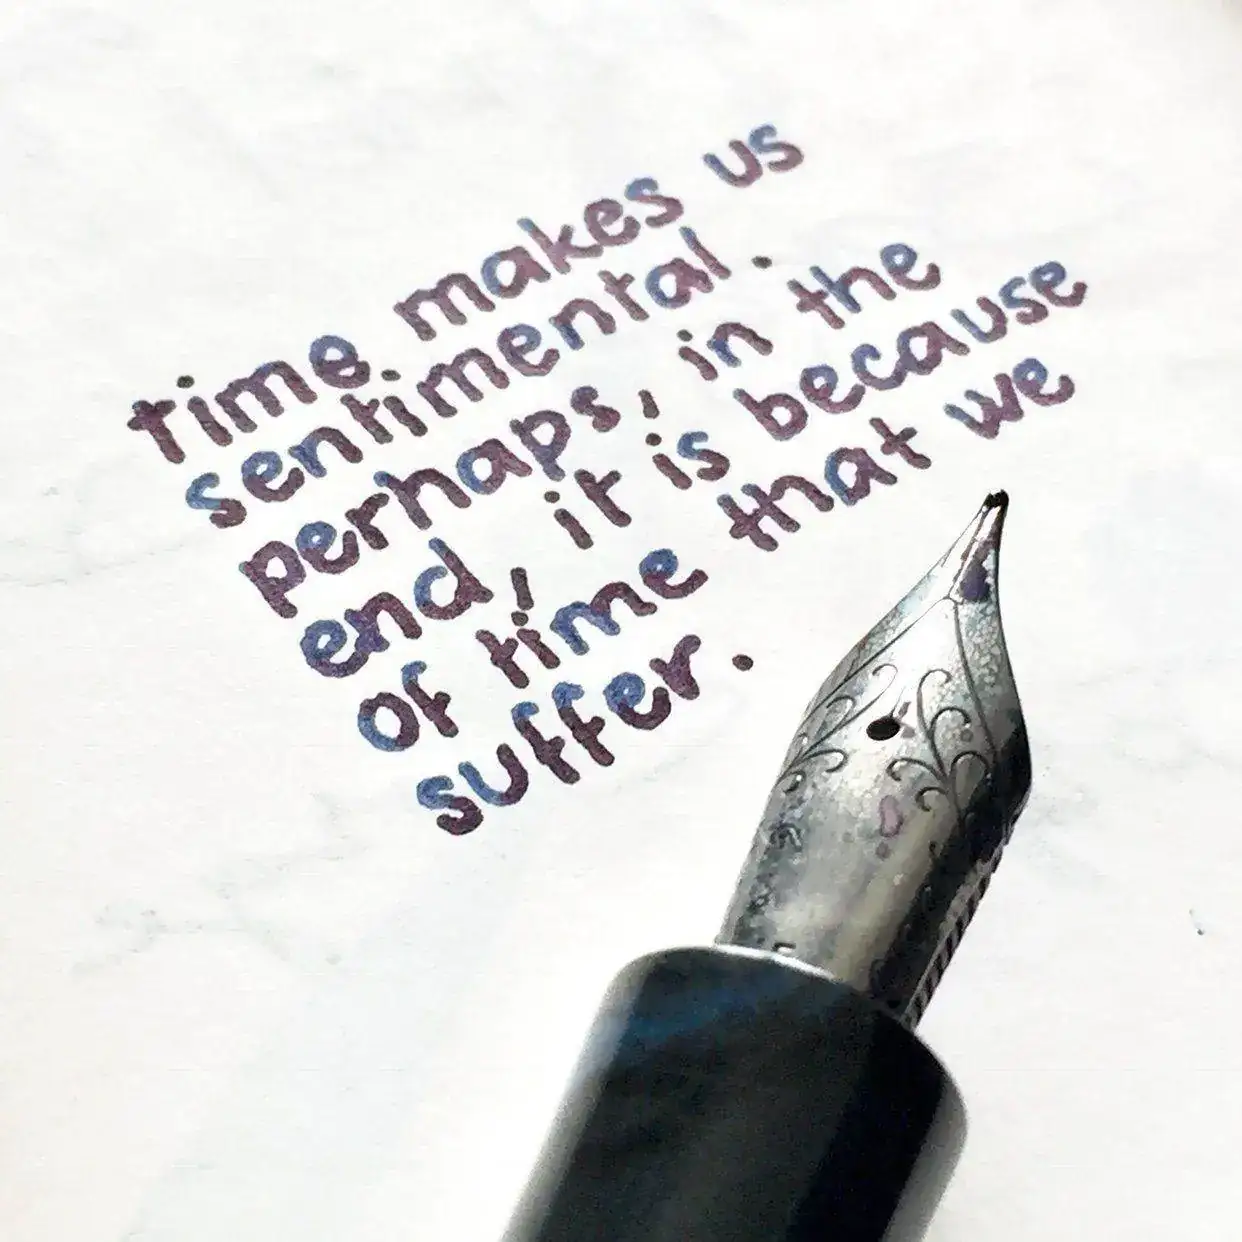 time makes us
sentimental.
perhaps, in the
end, it is because
of time that we
suffer.